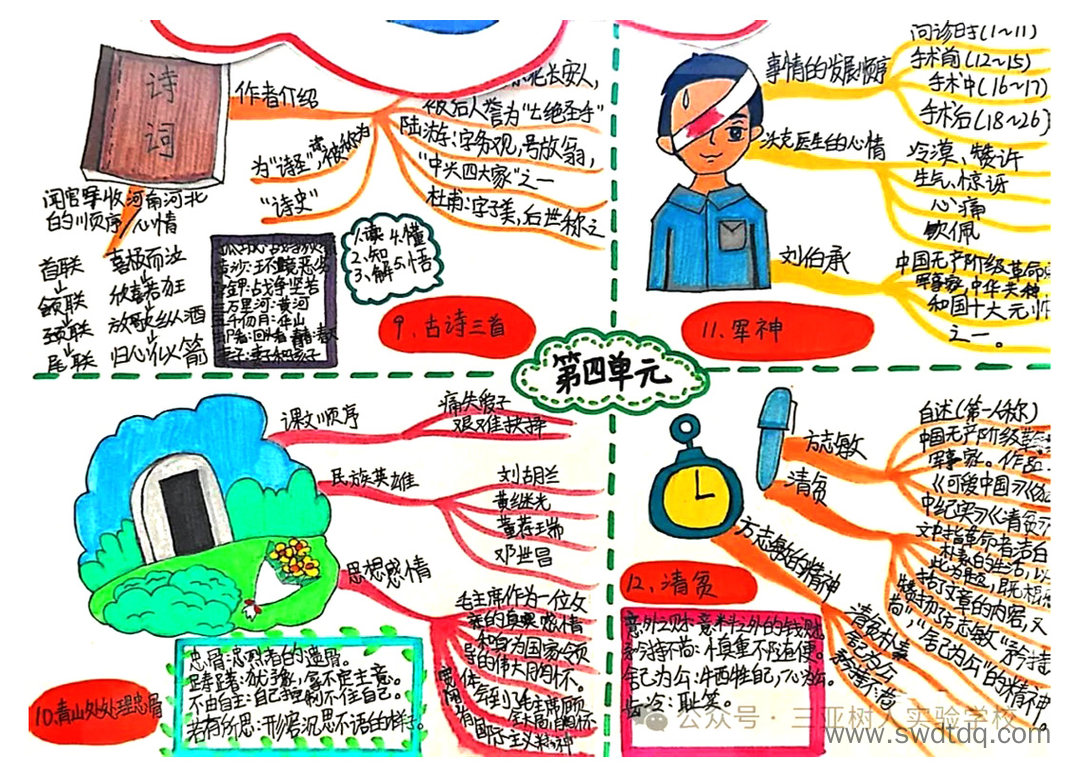 诗
词
作者介绍
被后人誉为"七绝圣手"
陆游:字务观,号放翁,
"中兴四大家"之一
杜甫:字子美,后世称之
为"诗圣"
"诗史"
闻官军收河南河北
的顺序/心情
首联 喜极而泣
颔联 欣喜若狂
颈联 放歌纵酒
尾联 归心似箭
三万里河:黄河
1.读 4.懂
2.知
3.解 5.悟
9、古诗三首
事情的发展顺序
问诊时(1~11)
手术前(12~15)
手术中(16~17)
手术后(18~26)
沃克医生的心情
冷漠、赞许
生气、惊讶
心痛
钦佩
刘伯承
中国无产阶级革命
军事家,中华
和国十大元帅
之一。
11、军神
第四单元
课文顺序
痛失爱子
艰难抉择
民族英雄
刘胡兰
黄继光
董存瑞
邓世昌
思想感情
毛主席作为一位父
亲的真实感情
和身为国家领
导的伟大胸怀。
忠骨:忠烈者的遗骨。
踌躇:犹豫,拿不定主意。
不由自主:自己控制不住自己。
若有所思:形容沉思不语的样子。
10.青山处处埋忠骨
方志敏
自述(第一人称)
中国无产阶级
军事家。作品:
《可爱的中国》《
《清贫》
清贫
方志敏的精神
清贫朴素
舍己为公
文中指革命者洁白
朴素的生活,以
此为题,既
括了文章的内容,又
"舍己为公"的精神
12、清贫
意外之财:意料之外的钱财
矜持不苟:慎重不随便。
舍己为公:牺牲自己,心为公。
齿冷:耻笑。
公众号·三亚树人实验学校
www.swdtdq.com